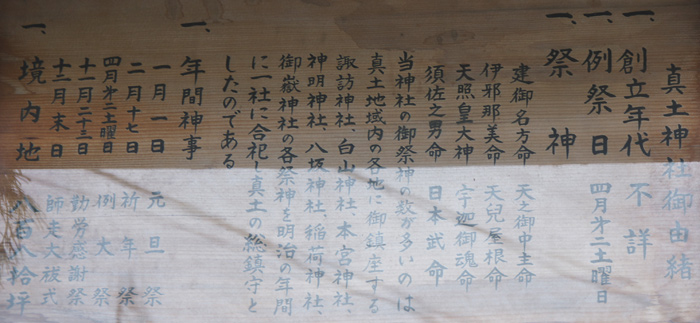 真土神社御由緒
一、創立年代 不詳
一、例祭日 四月第二土曜日
一、祭神
建御名方命 天之御中主命
伊邪那美命 天兒屋根命
天照皇大神 宇迦御魂命
須佐之男命 日本武命
当神社の御祭神の数が多いのは
真土地域内の各地に御鎮座する
諏訪神社、白山神社、本宮神社、
神明神社、八坂神社、稲荷神社、
御嶽神社の各祭神を明治の年間
に一社に合祀し真土の総鎮守と
したのである
一、年間神事
一月一日 元旦祭
二月十七日 祈年祭
四月第二土曜日 例大祭
十一月二十三日 勤労感謝祭
十二月末日 師走大祓式
一、境内地 八百八拾坪